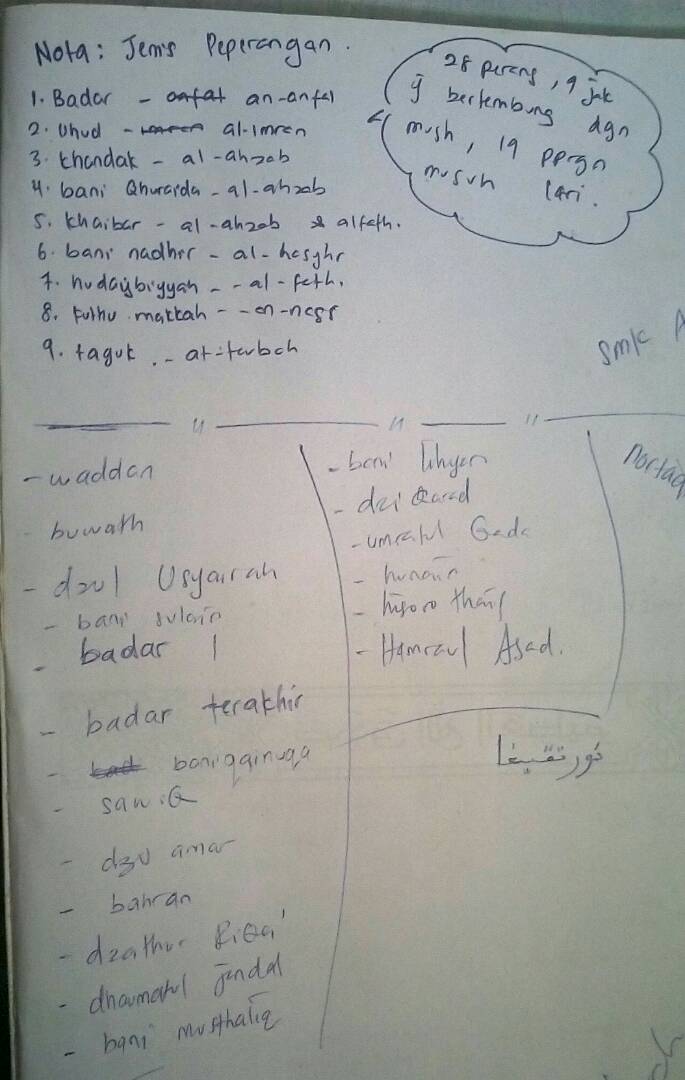 Nota: Jenis Peperangan.
28 perang, 9 jak
yg bertembung dgn
mush, 19 pprgn
musuh lari.
1. Badar - an-anfal
2. Uhud - al-imran
3. khandak - al-ahzab
4. bani Qhuraida - al-ahzab
5. khaibar - al-ahzab & alfath.
6. bani nadhir - al-hasyhr
7. hudaybiyyah - - al-fath.
8. futhu makkah - - an-nasr
9. tabuk - at-taubah
smk A
- waddan
- buwath
- dzul Usyairah
- bani sulaim
- badar 1
- badar terakhir
- bani qainuqa
- sawiQ
- dzu amar
- bahran
- dzathur RiQa'
- dhaumatul jandal
- bani musthaliq
- bani lihyan
- dzi Qarad
- umratul Qada
- hunain
- Hamraul Asad.